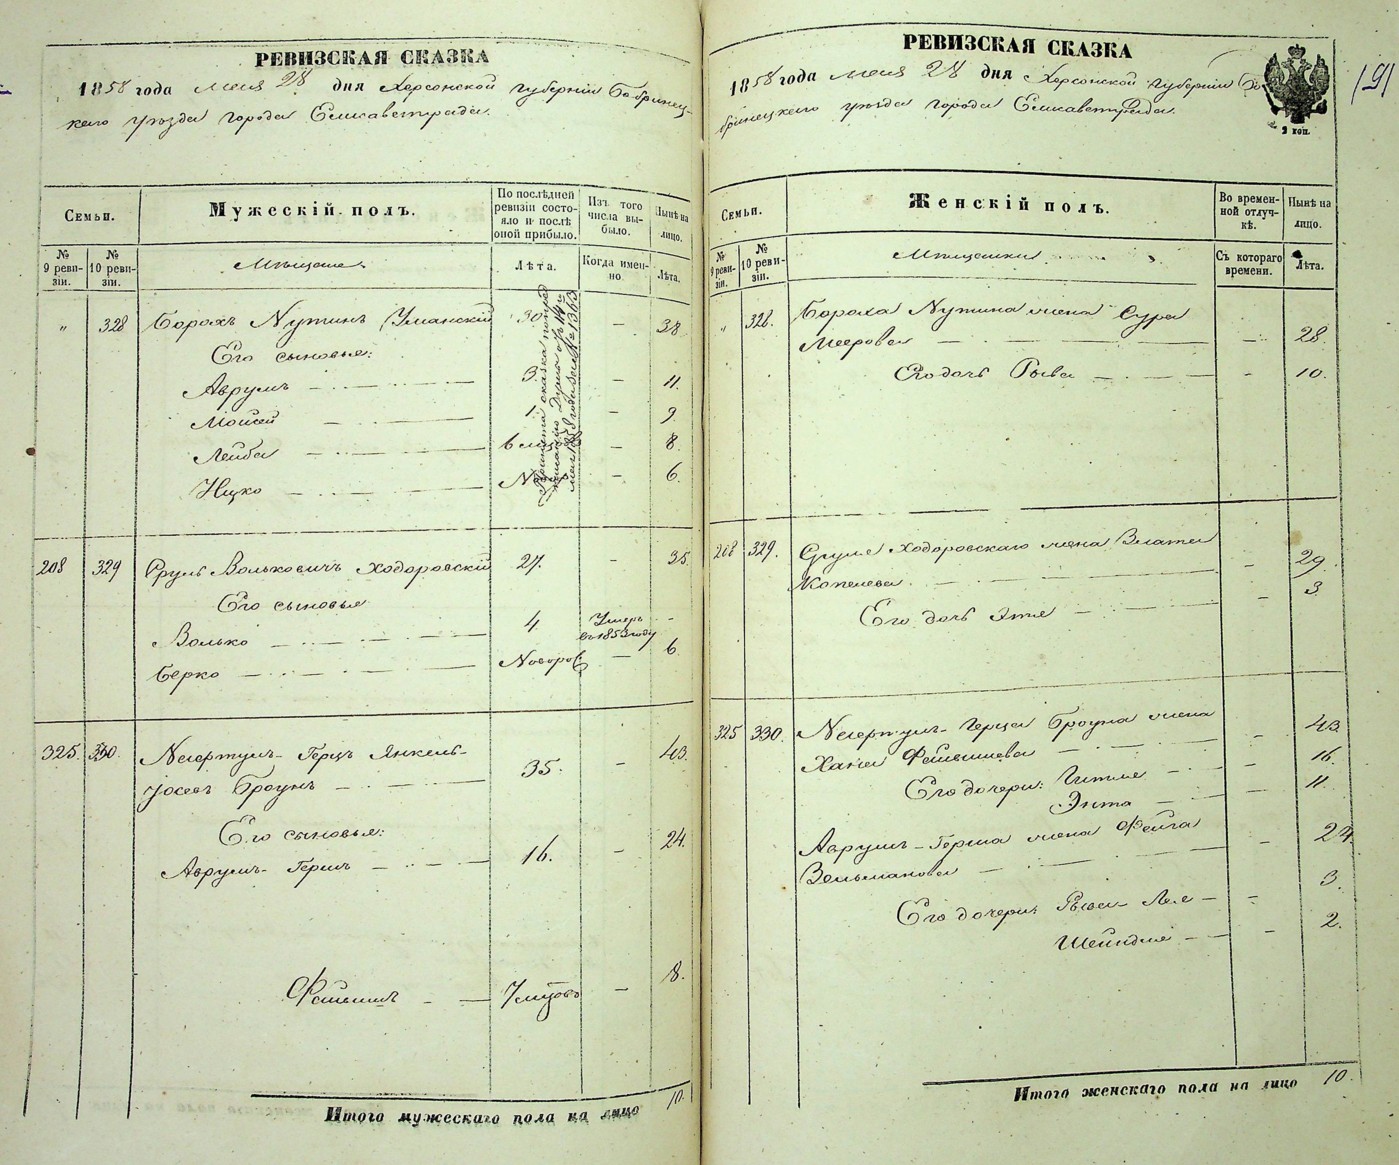 РЕВИЗСКАЯ СКАЗКА
1858 года мая 28 дня Херсонской губернии Бобринец-
каго уѣзда города Елисаветграда.
Семьи.
Мужескій полъ.
По послѣдней
ревизіи состо-
яло и послѣ
оной прибыло.
Изъ того
числа вы-
было.
Нынѣ на
лицо.
№
9 реви-
зіи.
№
10 реви-
зіи.
Мѣщане.
Лѣта.
Когда имен-
но
Лѣта.
„ 328 Борохъ Нутинъ Уманскій 30 – 38.
Его сыновья:
Аврумъ – 3. – 11.
Мойсей – 1. – 9.
Лейба – 6 мц – 8.
Ицко – – 6.
Принята сказка
1858 года № 1363
208 329 Сруль Вольковичъ Ходоровскій 27. – 35.
Его сыновья
Волько – 4 Умеръ
въ 1853 году –
Берко – Новорож – 6.
325. 330. Герцъ Янкель-
Іосевъ Броунъ – 35. – 43.
Его сыновья:
Аврумъ-Гершъ – 16. – 24.
Файвишъ – 7 мцовъ – 8.
Итого мужескаго пола на лицо 10.
РЕВИЗСКАЯ СКАЗКА
1858 года мая 28 дня Херсонской губерніи Бо-
бринецкаго уѣзда города Елисаветграда.
2 коп.
191
Семьи.
Женскій полъ.
Во времен-
ной отлуч-
кѣ.
Нынѣ на
лицо.
№
9 реви-
зіи.
№
10 реви-
зіи.
Мѣщанки
Съ котораго
времени.
Лѣта.
„ 328. Бороха Нутина жена Сура
Меерова – – 28.
Его дочь Рыва – – 10.
208 329. Сруля Ходоровскаго жена Злата
Копелева – – 29.
Его дочь Этя – – 3
325 330. Герца Броуна жена
Хана Файвишева – – 43.
Его дочери: Гитля – – 16.
Энта – – 11.
Аврумъ-Герша жена Фейга
Зельманова – – 24.
Его дочери: Рыва-Лея – – 3.
Шейндля – – 2.
Итого женскаго пола на лицо 10.